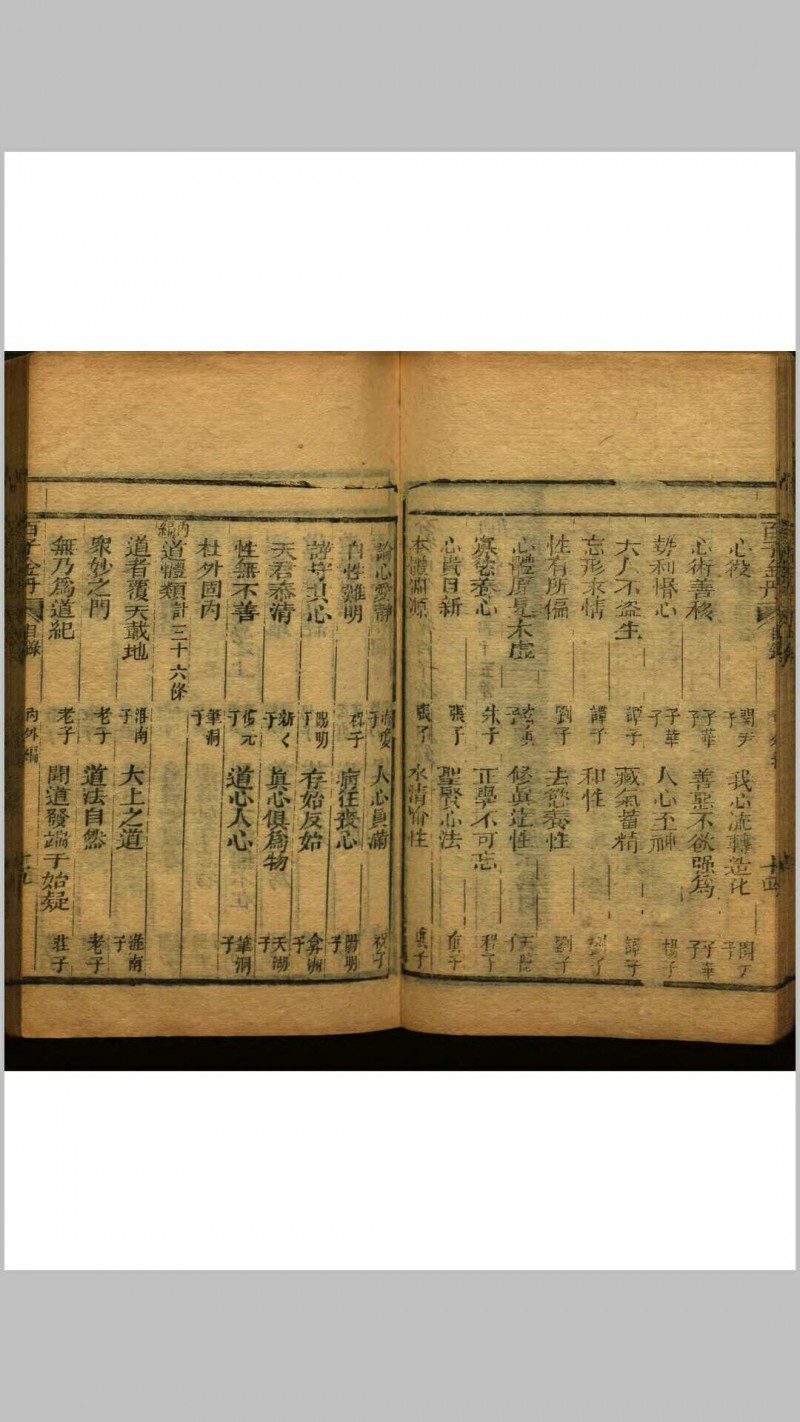 心役 關尹子 我心流轉造化 關尹子
心術善移 子華子 善惡不欲強爲 子華子
勢利憯心 子華子 人心丕神 楊子
大人不盜生 譚子 藏氣蓄精 譚子
忘形求情 譚子 和性 劉子
性有所偏 劉子 去慾養性 劉子
心體原是太虛 修真達性
寡慾養心 朱子 正學不可忘 程子
心貴日新 張子 聖賢心法
本體淵源 張子 水清喻性
論心愛靜 人心具滿
自性難明 程子 病狂喪心 陽明子
謹守真心 陽明子 存始反始 弇州子
天君泰清 眞心俱爲物 天湖子
性無不善 道心人心 筆洞子
杜外固內 筆洞子
內編 道體類 計三十六條
道者覆天載地 淮南子 大上之道 淮南子
衆妙之門 老子 道法自然 老子
無乃爲道紀 老子 聞道發端于始疑 莊子
百子金丹 目錄 內外編